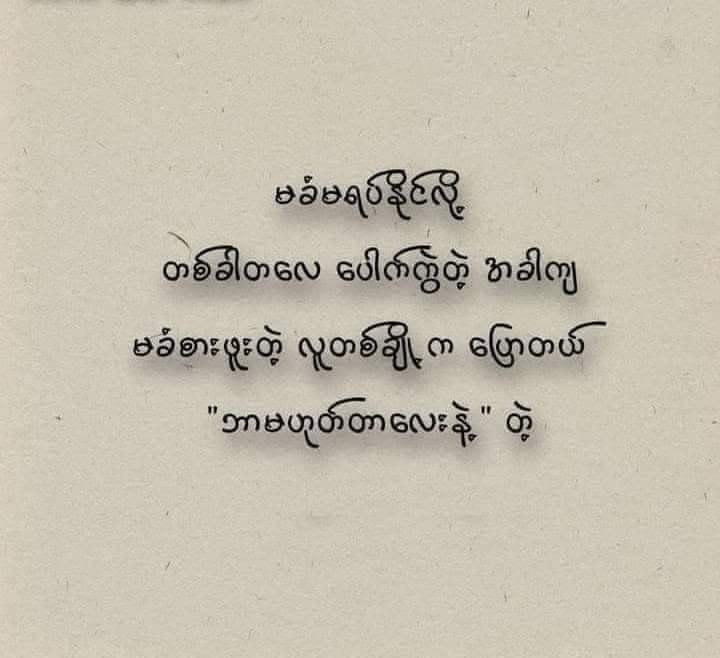 မခံမရပ်နိုင်လို့
တစ်ခါတလေ ပေါက်ကွဲတဲ့ အခါကျ
မခံစားဖူးတဲ့ လူတစ်ချို့က ပြောတယ်
"ဘာမဟုတ်တာလေးနဲ့" တဲ့